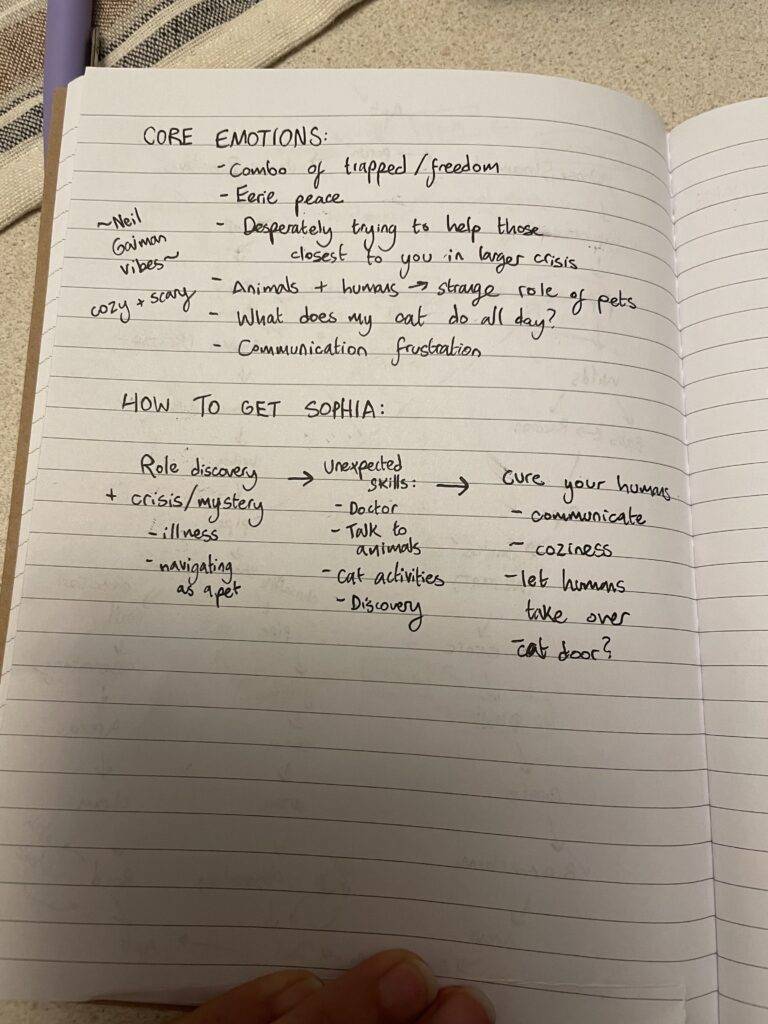 CORE EMOTIONS:
- Combo of trapped/freedom
- Eerie peace
~Neil
Gaiman
vibes~
cozy + scary
- Desperately trying to help those
closest to you in larger crisis
- Animals + humans → strange role of pets
- What does my cat do all day?
- Communication frustration
HOW TO GET SOPHIA:
Role discovery
+ crisis/mystery
- illness
- navigating
as a pet
→
Unexpected
skills:
- Doctor
- Talk to
animals
- Cat activities
- Discovery
→
Cure your humans
- communicate
- coziness
- let humans
take over
- cat door?